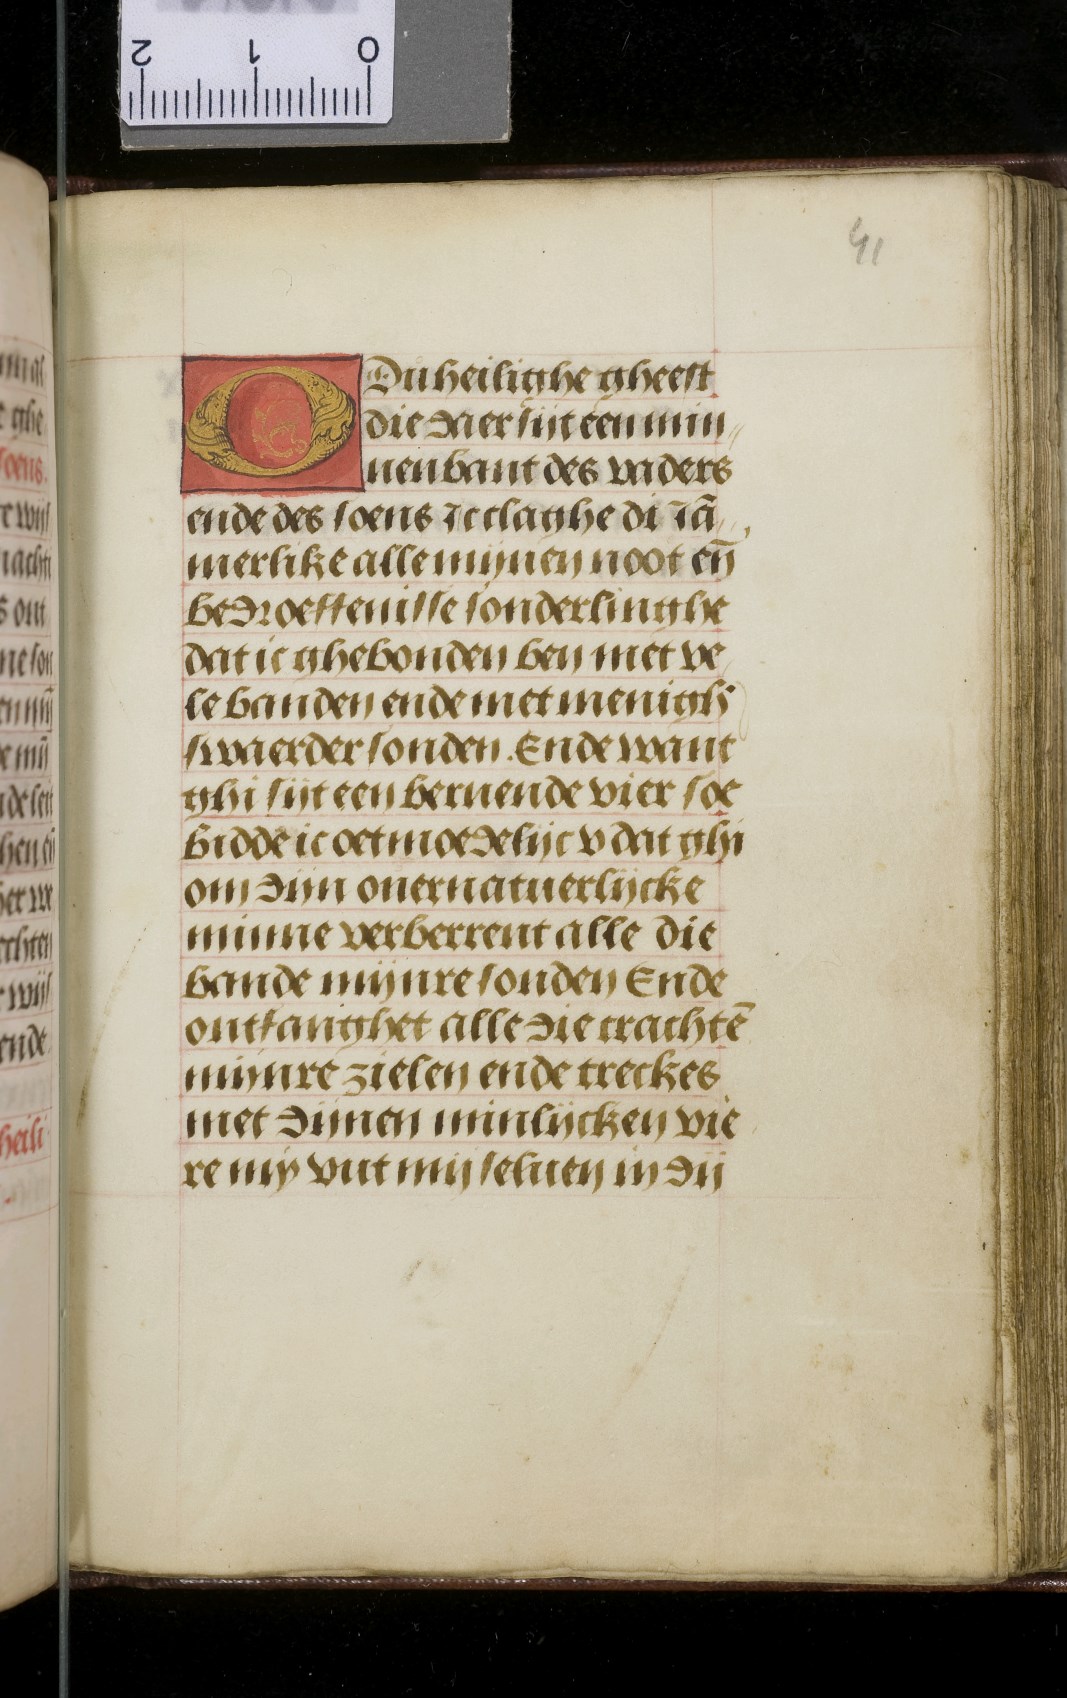 2 1 0
41
O Du heilighe gheest
die daer sijt een min
nen bant des vaders
ende des soens Ic claghe di Iā
merlike alle mijnen noot eñ
bedroeffenisse sonderlinghe
dat ic ghebonden ben met ve
le banden ende met menigh
swaerder sonden. Ende want
ghi sijt een bernende vier soe
bidde ic oetmoedelijc v dat ghi
om dijn ouernatuerlijcke
minne verberrent alle die
bande mijnre sonden Ende
ontfanghet alle die crachtē
mijnre zielen ende treckes
met dijnen minlijcken vie
re mij vut mij seluen in dij